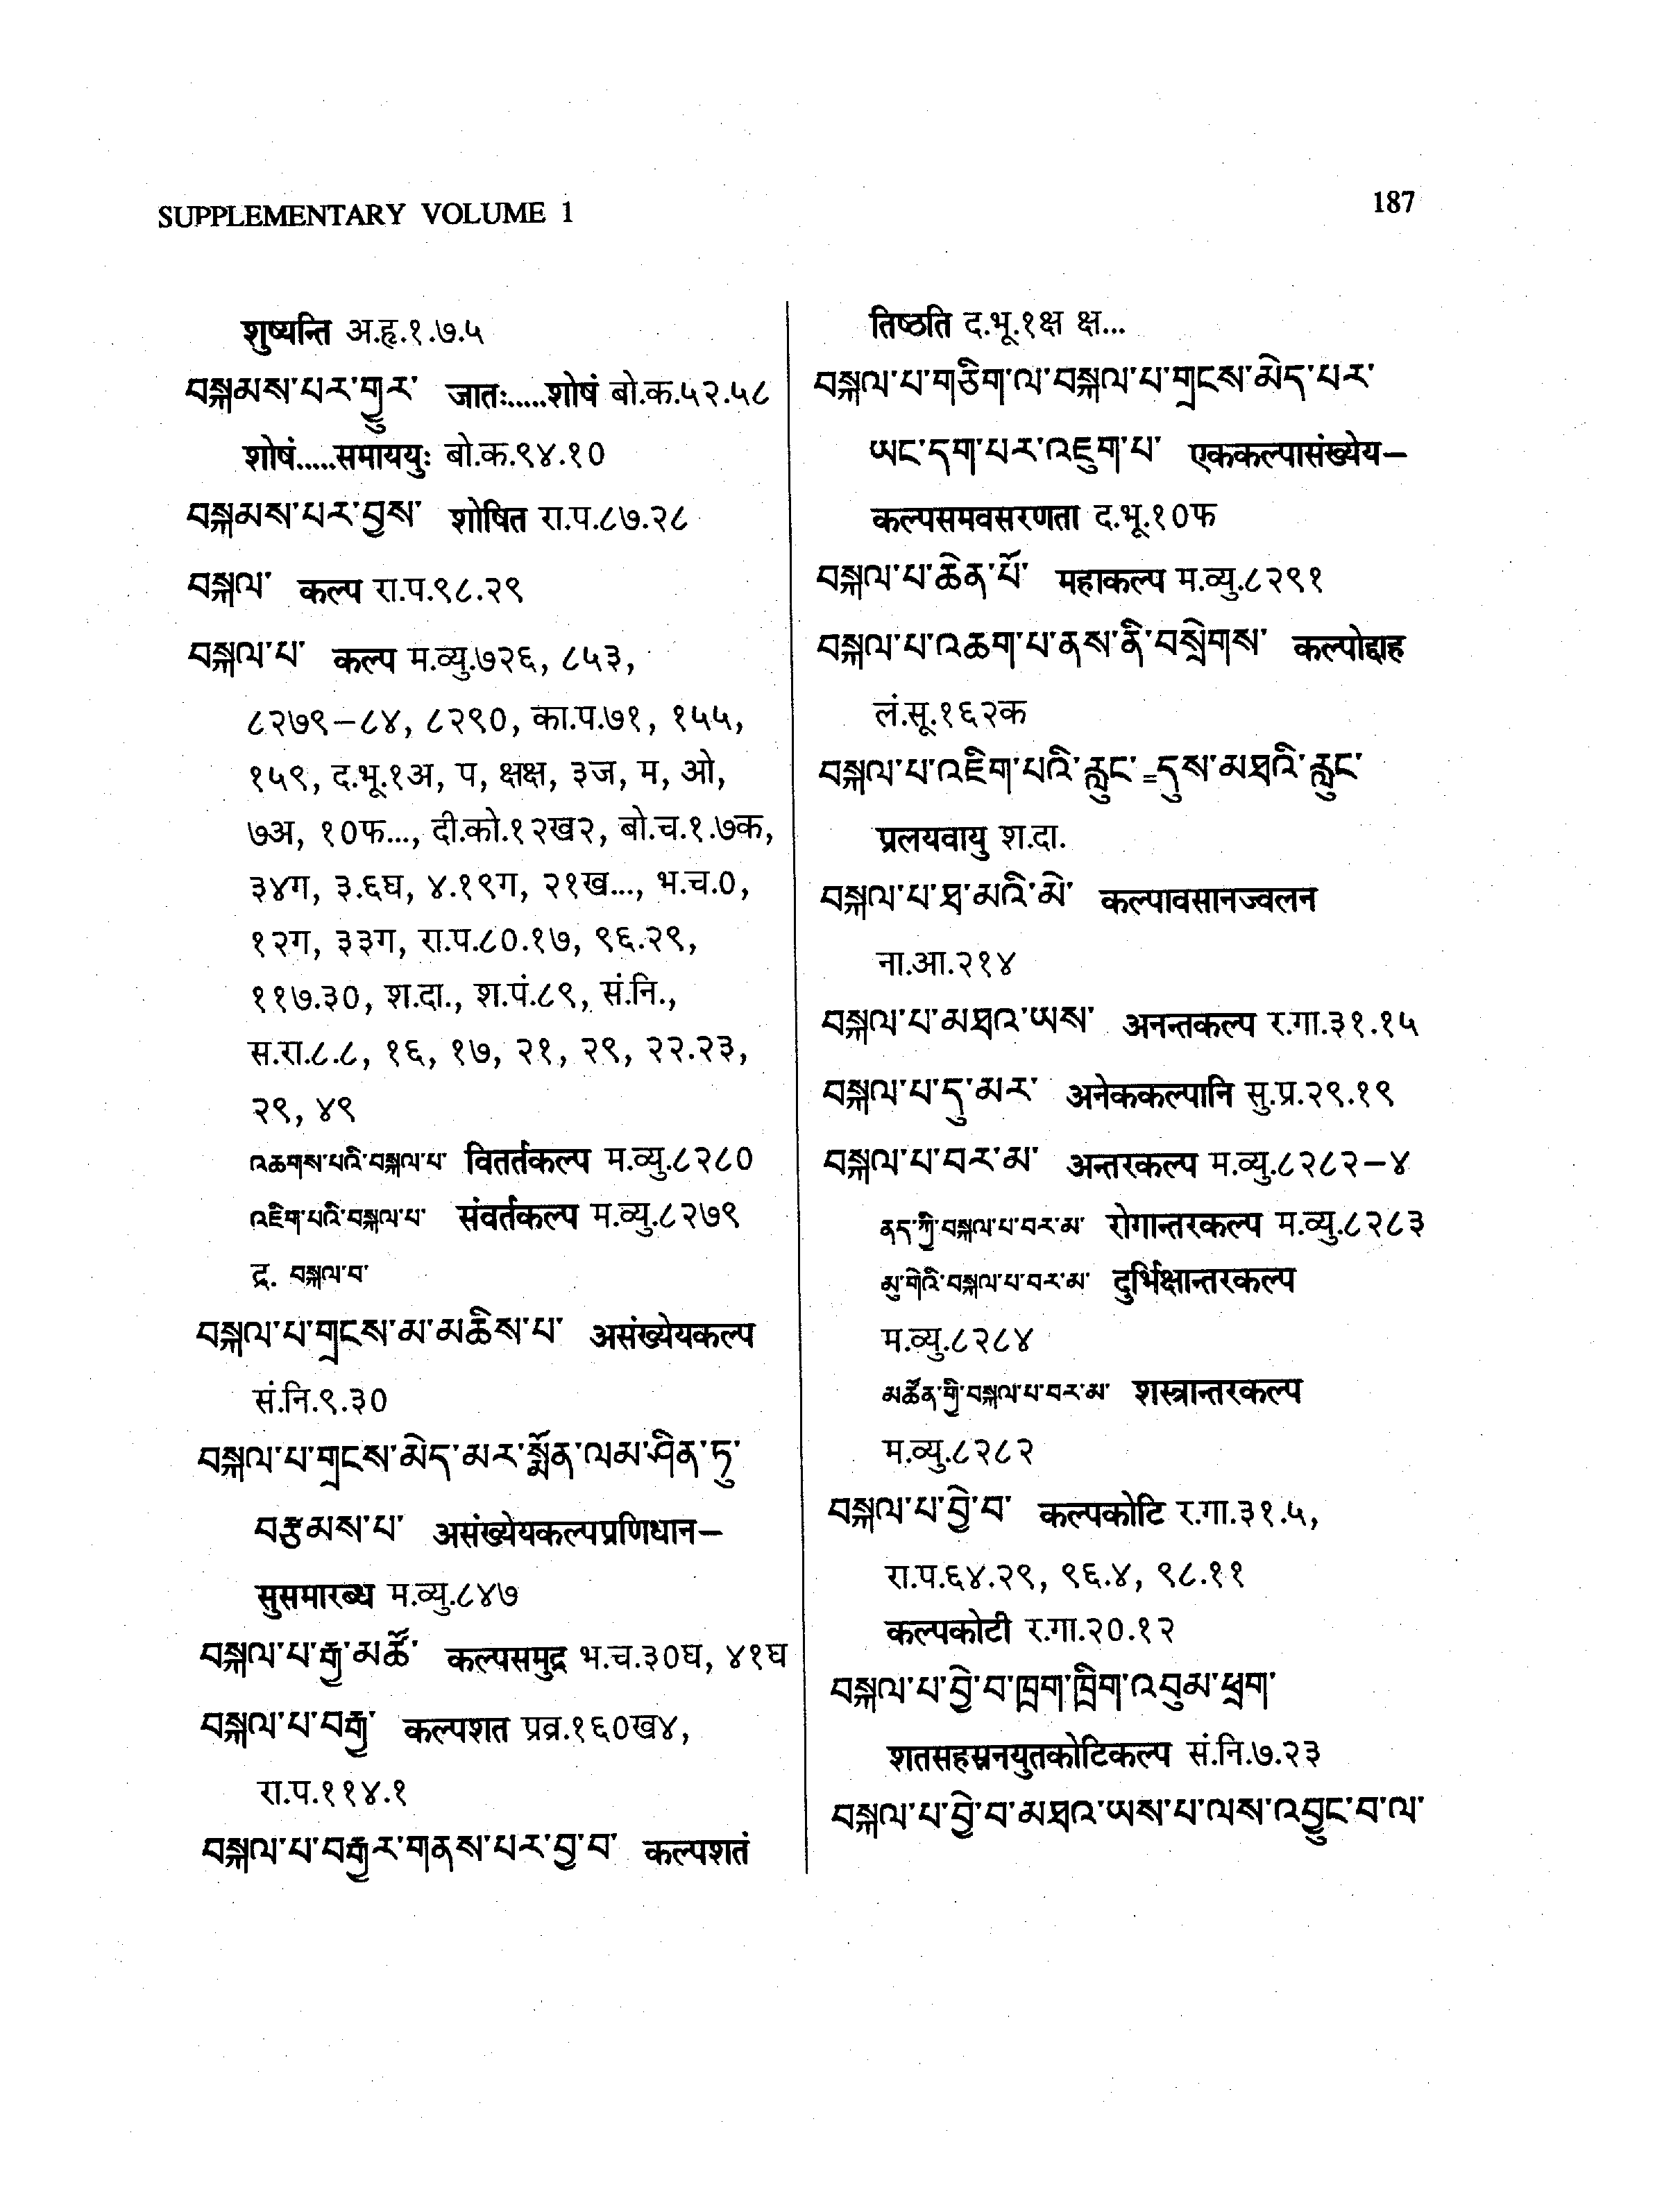 SUPPLEMENTARY VOLUME 1
187
शुष्यन्ति अ.हृ.१.७.५
བསྐམས་པར་གྱུར་ जातः.....शोषं बो.क.५२.५८
शोषं.....समाययुः बो.क.९४.१०
བསྐམས་པར་བྱས་ शोषित रा.प.८७.२८
བསྐལ་ कल्प रा.प.९८.२९
བསྐལ་པ་ कल्प म.व्यु.७२६, ८५३,
८२७९–८४, ८२९०, का.प.७१, १५५,
१५९, द.भू.१अ, प, क्षक्ष, ३ज, म, ओ,
७अ, १०फ..., दी.को.१२ख२, बो.च.१.७क,
३४ग, ३.६घ, ४.१९ग, २१ख..., भ.च.०,
१२ग, ३३ग, रा.प.८०.१७, ९६.२९,
११७.३०, श.दा., श.पं.८९, सं.नि.,
स.रा.८.८, १६, १७, २१, २९, २२.२३,
२९, ४९
འཆགས་པའི་བསྐལ་པ་ विवर्तकल्प म.व्यु.८२८०
འཇིག་པའི་བསྐལ་པ་ संवर्तकल्प म.व्यु.८२७९
द्र. བསྐལ་བ་
བསྐལ་པ་གྲངས་མ་མཆིས་པ་ असंख्येयकल्प
सं.नि.९.३०
བསྐལ་པ་གྲངས་མེད་མར་སྨོན་ལམ་ཤིན་ཏུ་
བརྩམས་པ་ असंख्येयकल्पप्रणिधान–
सुसमारब्ध म.व्यु.८४७
བསྐལ་པ་རྒྱ་མཚོ་ कल्पसमुद्र भ.च.३०घ, ४१घ
བསྐལ་པ་བརྒྱ་ कल्पशत प्रव्र.१६०ख४,
रा.प.११४.१
བསྐལ་པ་བརྒྱར་གནས་པར་བྱ་བ་ कल्पशतं
तिष्ठति द.भू.१क्ष क्ष...
བསྐལ་པ་གཅིག་ལ་བསྐལ་པ་གྲངས་མེད་པར་
ཡང་དག་པར་འཇུག་པ་ एककल्पासंख्येय–
कल्पसमवसरणता द.भू.१०फ
བསྐལ་པ་ཆེན་པོ་ महाकल्प म.व्यु.८२९१
བསྐལ་པ་འཆག་པ་ནས་ནི་བསྲེགས་ कल्पोद्दाह
लं.सू.१६२क
བསྐལ་པ་འཇིག་པའི་རླུང་=དུས་མཐའི་རླུང་
प्रलयवायु श.दा.
བསྐལ་པ་ཐ་མའི་མེ་ कल्पावसानज्वलन
ना.आ.२१४
བསྐལ་པ་མཐའ་ཡས་ अनन्तकल्प र.गा.३१.१५
བསྐལ་པ་དུ་མར་ अनेककल्पानि सु.प्र.२९.१९
བསྐལ་པ་བར་མ་ अन्तरकल्प म.व्यु.८२८२–४
ནད་ཀྱི་བསྐལ་པ་བར་མ་ रोगान्तरकल्प म.व्यु.८२८३
མུ་གེའི་བསྐལ་པ་བར་མ་ दुर्भिक्षान्तरकल्प
म.व्यु.८२८४
མཚོན་གྱི་བསྐལ་པ་བར་མ་ शस्त्रान्तरकल्प
म.व्यु.८२८२
བསྐལ་པ་བྱེ་བ་ कल्पकोटि र.गा.३१.५,
रा.प.६४.२९, ९६.४, ९८.११
कल्पकोटी र.गा.२०.१२
བསྐལ་པ་བྱེ་བ་ཁྲག་ཁྲིག་འབུམ་ཕྲག་
शतसहस्रनयुतकोटिकल्प सं.नि.७.२३
བསྐལ་པ་བྱེ་བ་མཐའ་ཡས་པ་ལས་འབྱུང་བ་ལ་